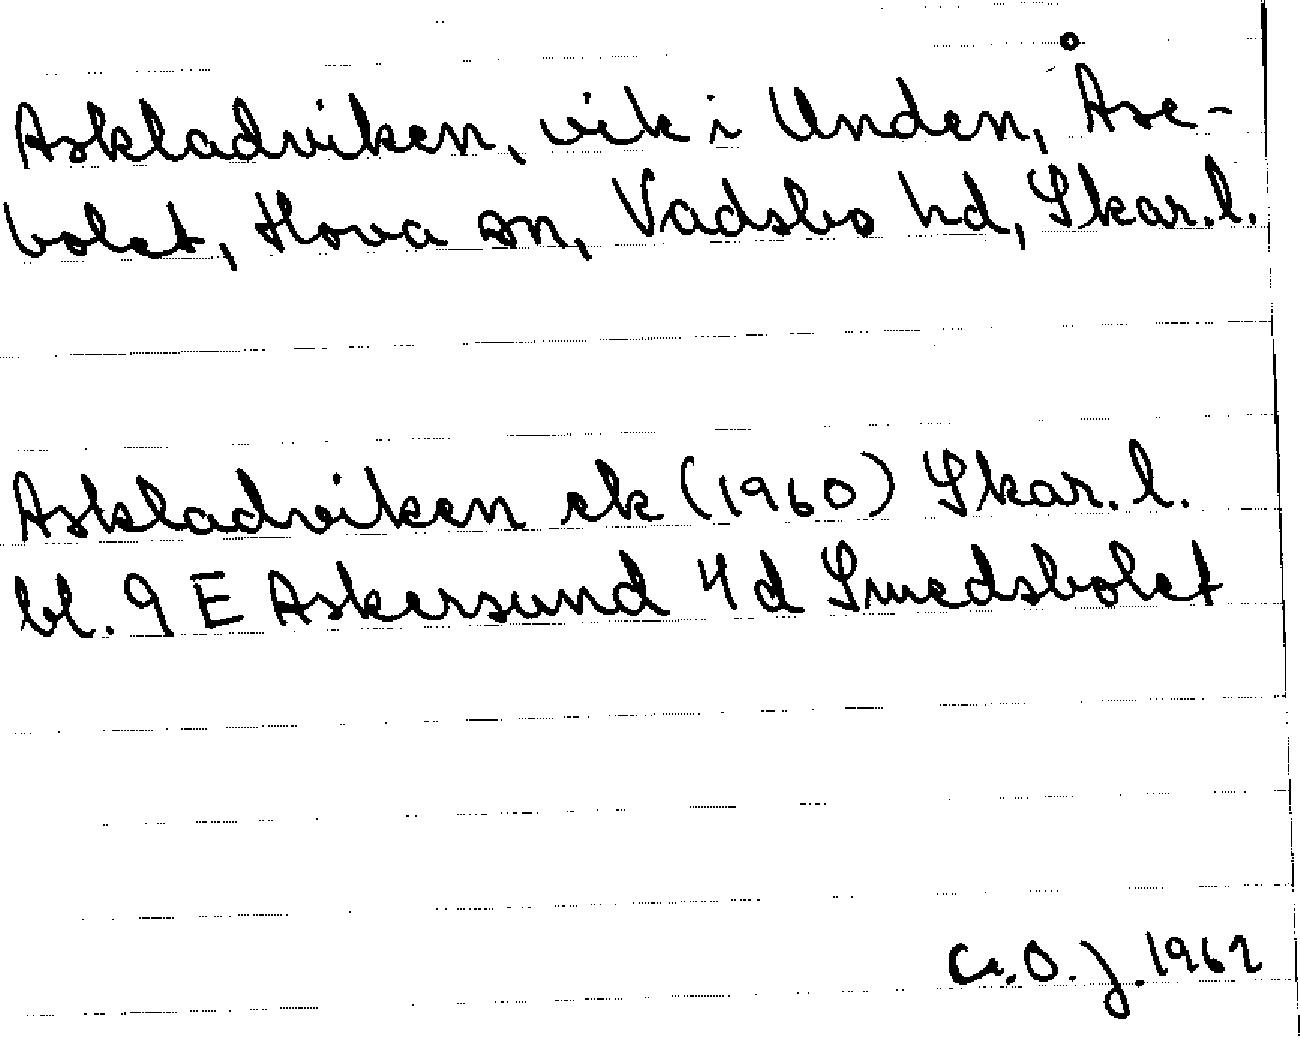 Askladviken, vik i Unden, Åse-
bolet, Hova sn, Vadsbo hd, Skar. l.
Askladviken ek (1960) Skar. l.
bl. 9 E Askersund 4d Smedsbolet
C.O.J. 1962